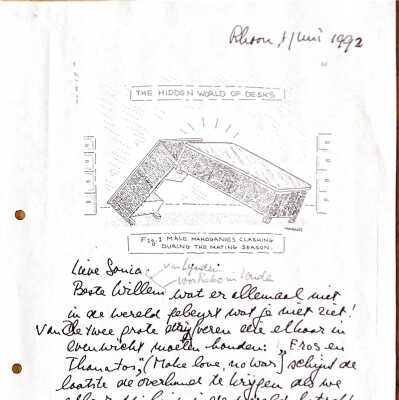 Rhoon, 8/Juni 1992
THE HIDDEN WORLD OF DESKS
Fig. 1 MALE MAHOGANIES CLASHING
DURING THE MATING SEASON.
Lieve Sonia
Beste Willem wat er allemaal niet
in de wereld gebeurt wat je niet ziet!
Van de twee grote drijfveren die elkaar in
evenwicht moeten houden: „Eros en
Thanatos", (Make love, no war) schijnt de
laatste de overhand te krijgen als we